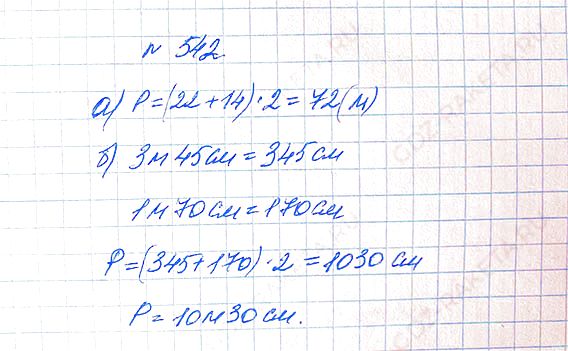 № 542.
а) P=(22+14)·2=72(м)
б) 3м 45см=345см
1м 70см=170см
P=(345+170)·2=1030 см
P=10м 30см.
GDZ-RAKETA.RU